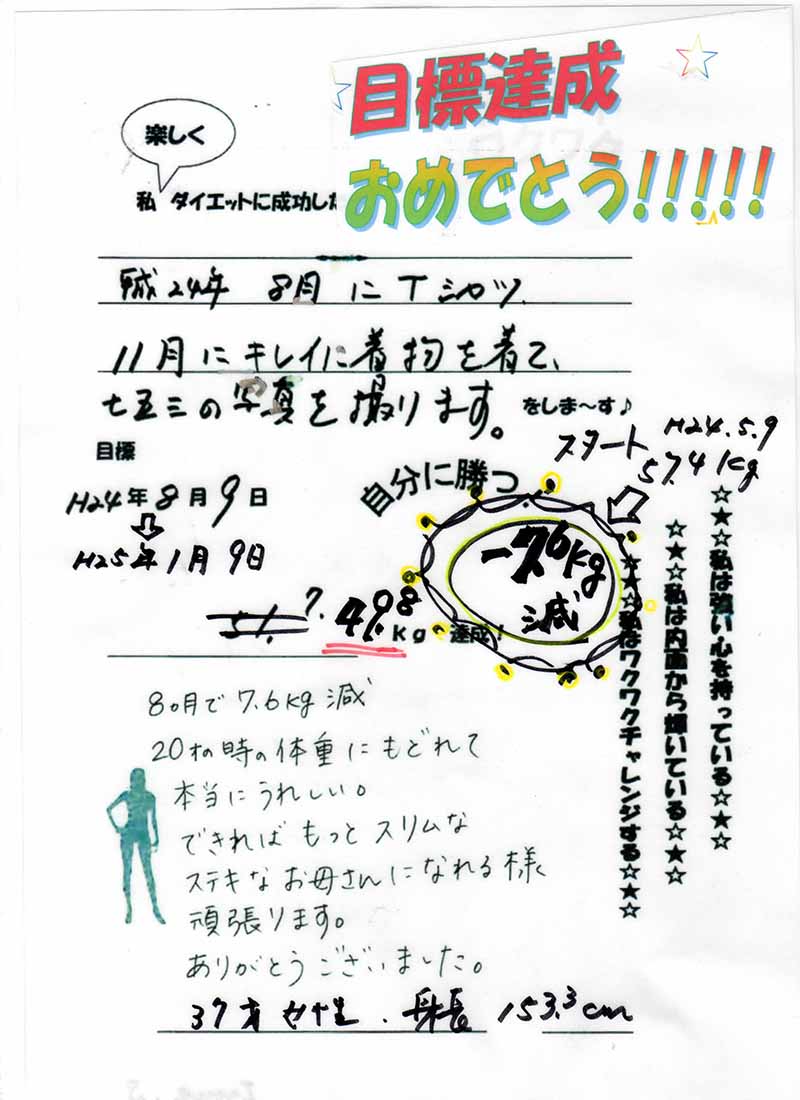 目標達成
おめでとう!!!!!
楽しく
私 ダイエットに成功した
平成24年 8月 に Tシャツ
11月にキレイに着物を着て、
七五三の写真を撮ります。をしま〜す♪
目標
スタート H24.5.9
57.4kg
H24年8月9日
H25年1月9日
自分に勝つ
-7.6kg
減
51.7.
49.8kg 達成!
☆★☆私は強い心を持っている☆★☆
☆★☆私は内面から輝いている☆★☆
☆★☆私はワクワクチャレンジする☆★☆
8ヶ月で7.6kg減
20才の時の体重にもどれて
本当にうれしい。
できればもっとスリムな
ステキなお母さんになれる様
頑張ります。
ありがとうございました。
37才 女性. 身長 153.3cm